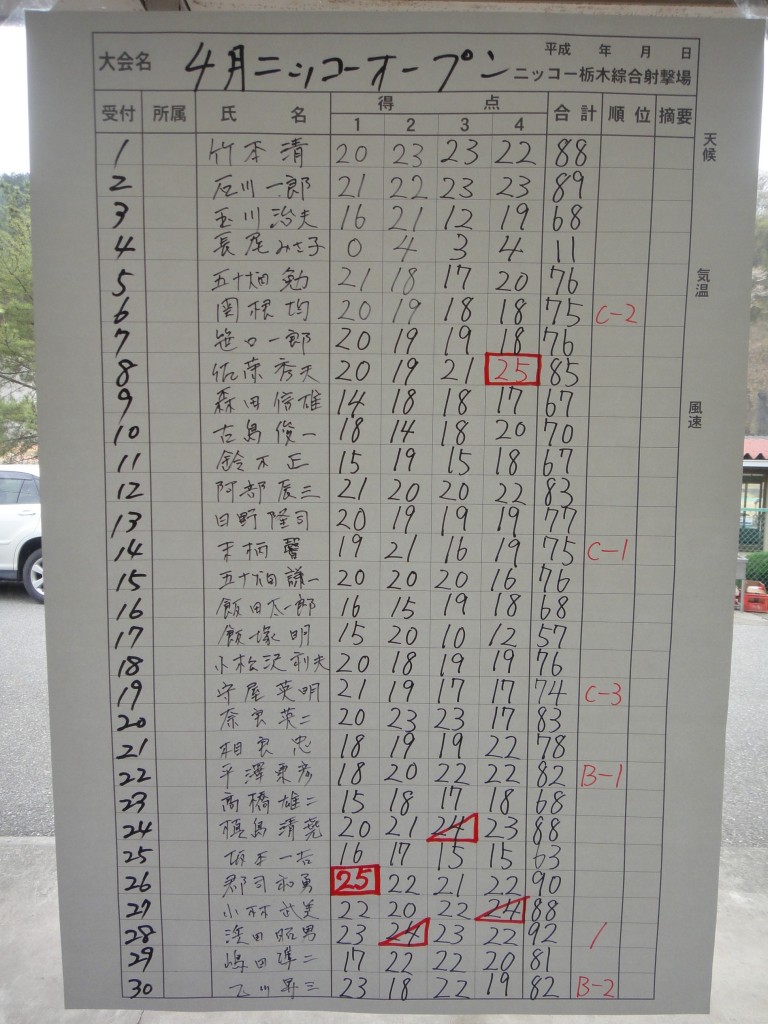 平成 年 月 日
大会名 4月ニッコーオープン ニッコー栃木綜合射撃場
受付 所属 氏 名 得 点 合計 順位 摘要
1 2 3 4
1 竹本 清 20 23 23 22 88
2 石川一郎 21 22 23 23 89
3 玉川治夫 16 21 12 19 68
4 長尾みさ子 0 4 3 4 11
5 五十畑 勉 21 18 17 20 76
6 関根 均 20 19 18 18 75 C-2
7 笹口一郎 20 19 19 18 76
8 佐藤秀夫 20 19 21 25 85
9 森田信雄 14 18 18 17 67
10 古島俊一 18 14 18 20 70
11 鈴木 正 15 19 15 18 67
12 阿部辰三 21 20 20 22 83
13 日野隆司 20 19 19 19 77
14 末柄 馨 19 21 16 19 75 C-1
15 五十畑謙一 20 20 20 16 76
16 飯田太一郎 16 15 19 18 68
17 飯塚 明 15 20 10 12 57
18 小松沢利夫 20 18 19 19 76
19 守屋英明 21 19 17 17 74 C-3
20 奈良英二 20 23 23 17 83
21 相良 忠 18 19 19 22 78
22 平澤 18 20 22 22 82 B-1
23 高橋雄二 15 18 17 18 68
24 槙島清 20 21 24 23 88
25 坂本一 16 17 15 15 63
26 郡司和勇 25 22 21 22 90
27 小林武美 22 20 22 24 88
28 浜田昭男 23 24 23 22 92 1
29 嶋田 二 17 22 22 20 81
30 川昇三 23 18 22 19 82 B-2
天候
気温
風速